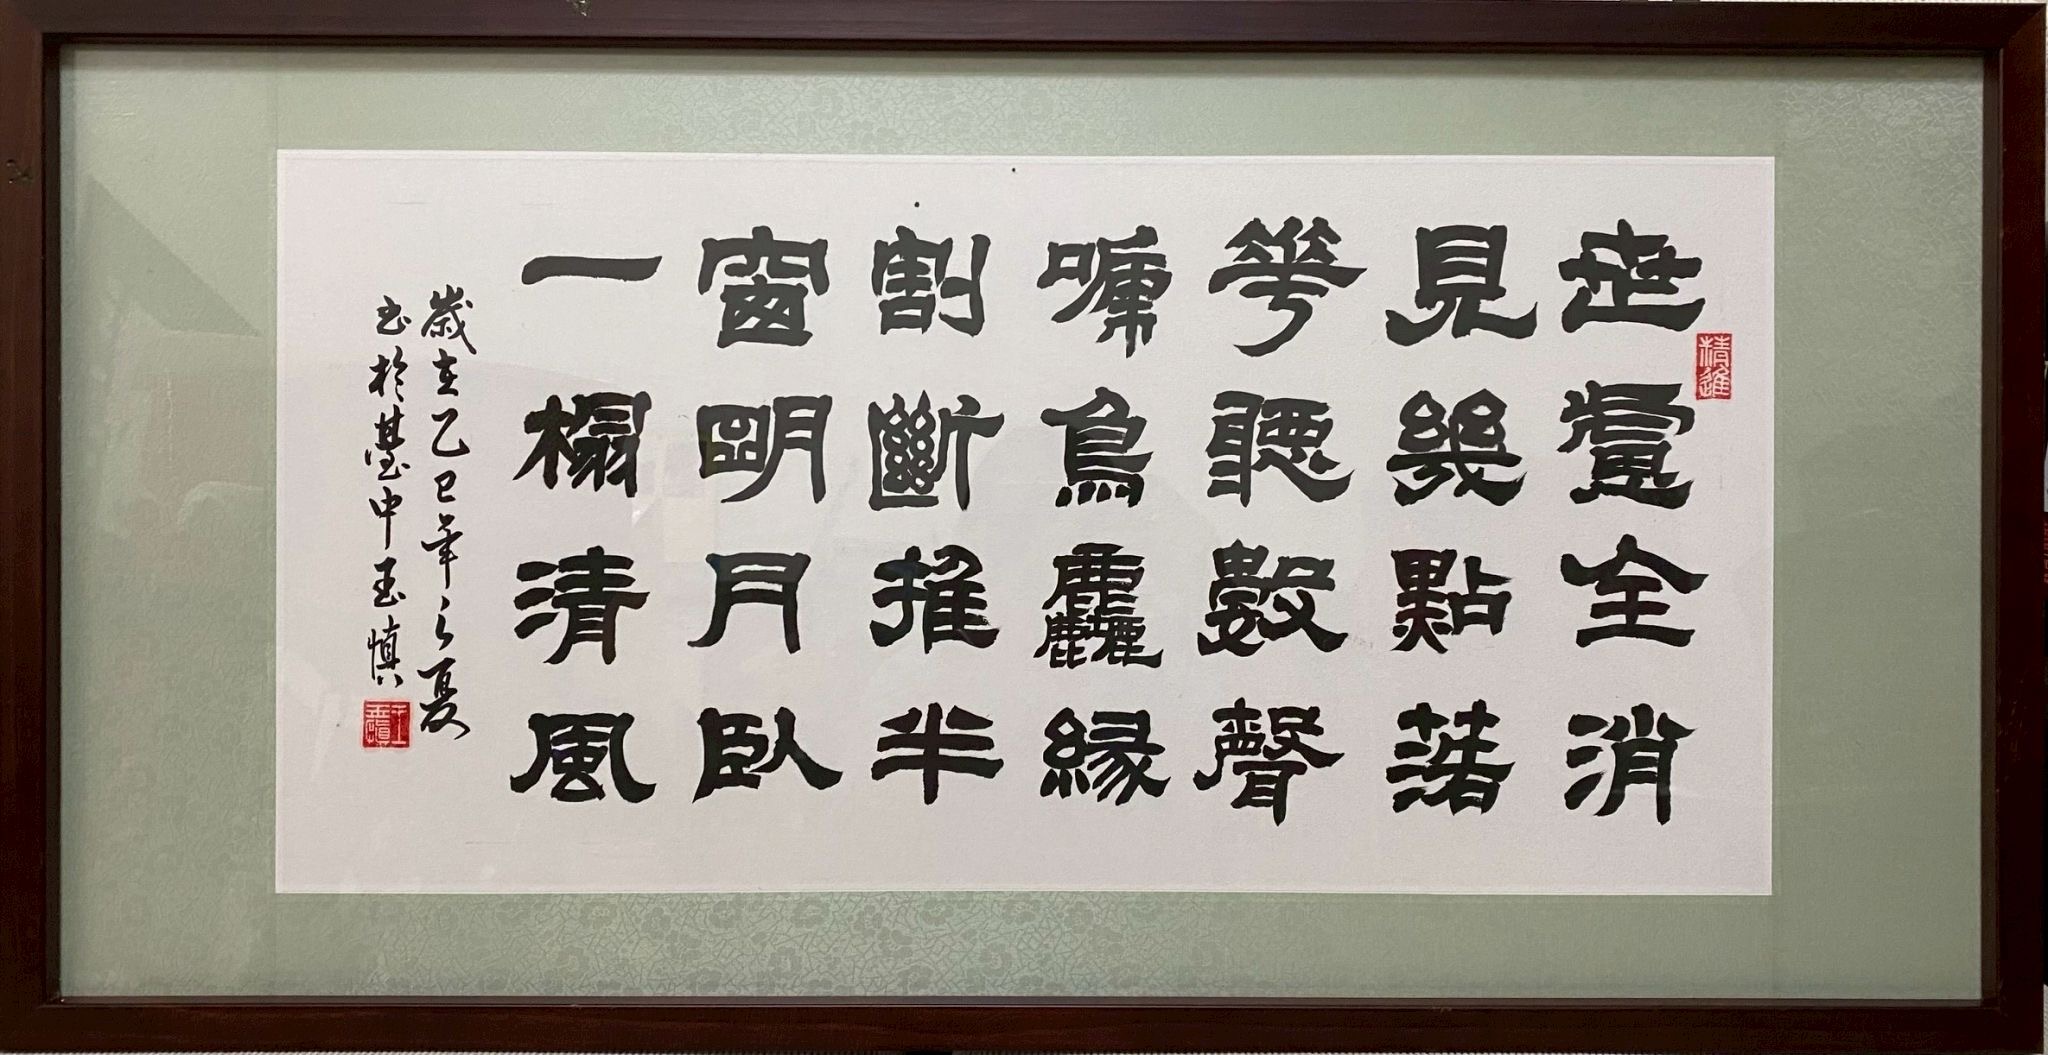 精進
世慮全消
見幾點落
華聽數聲
啼鳥塵緣
割斷推半
窗明月臥
一榻清風
歲在乙巳年之夏
書於臺中玉慎